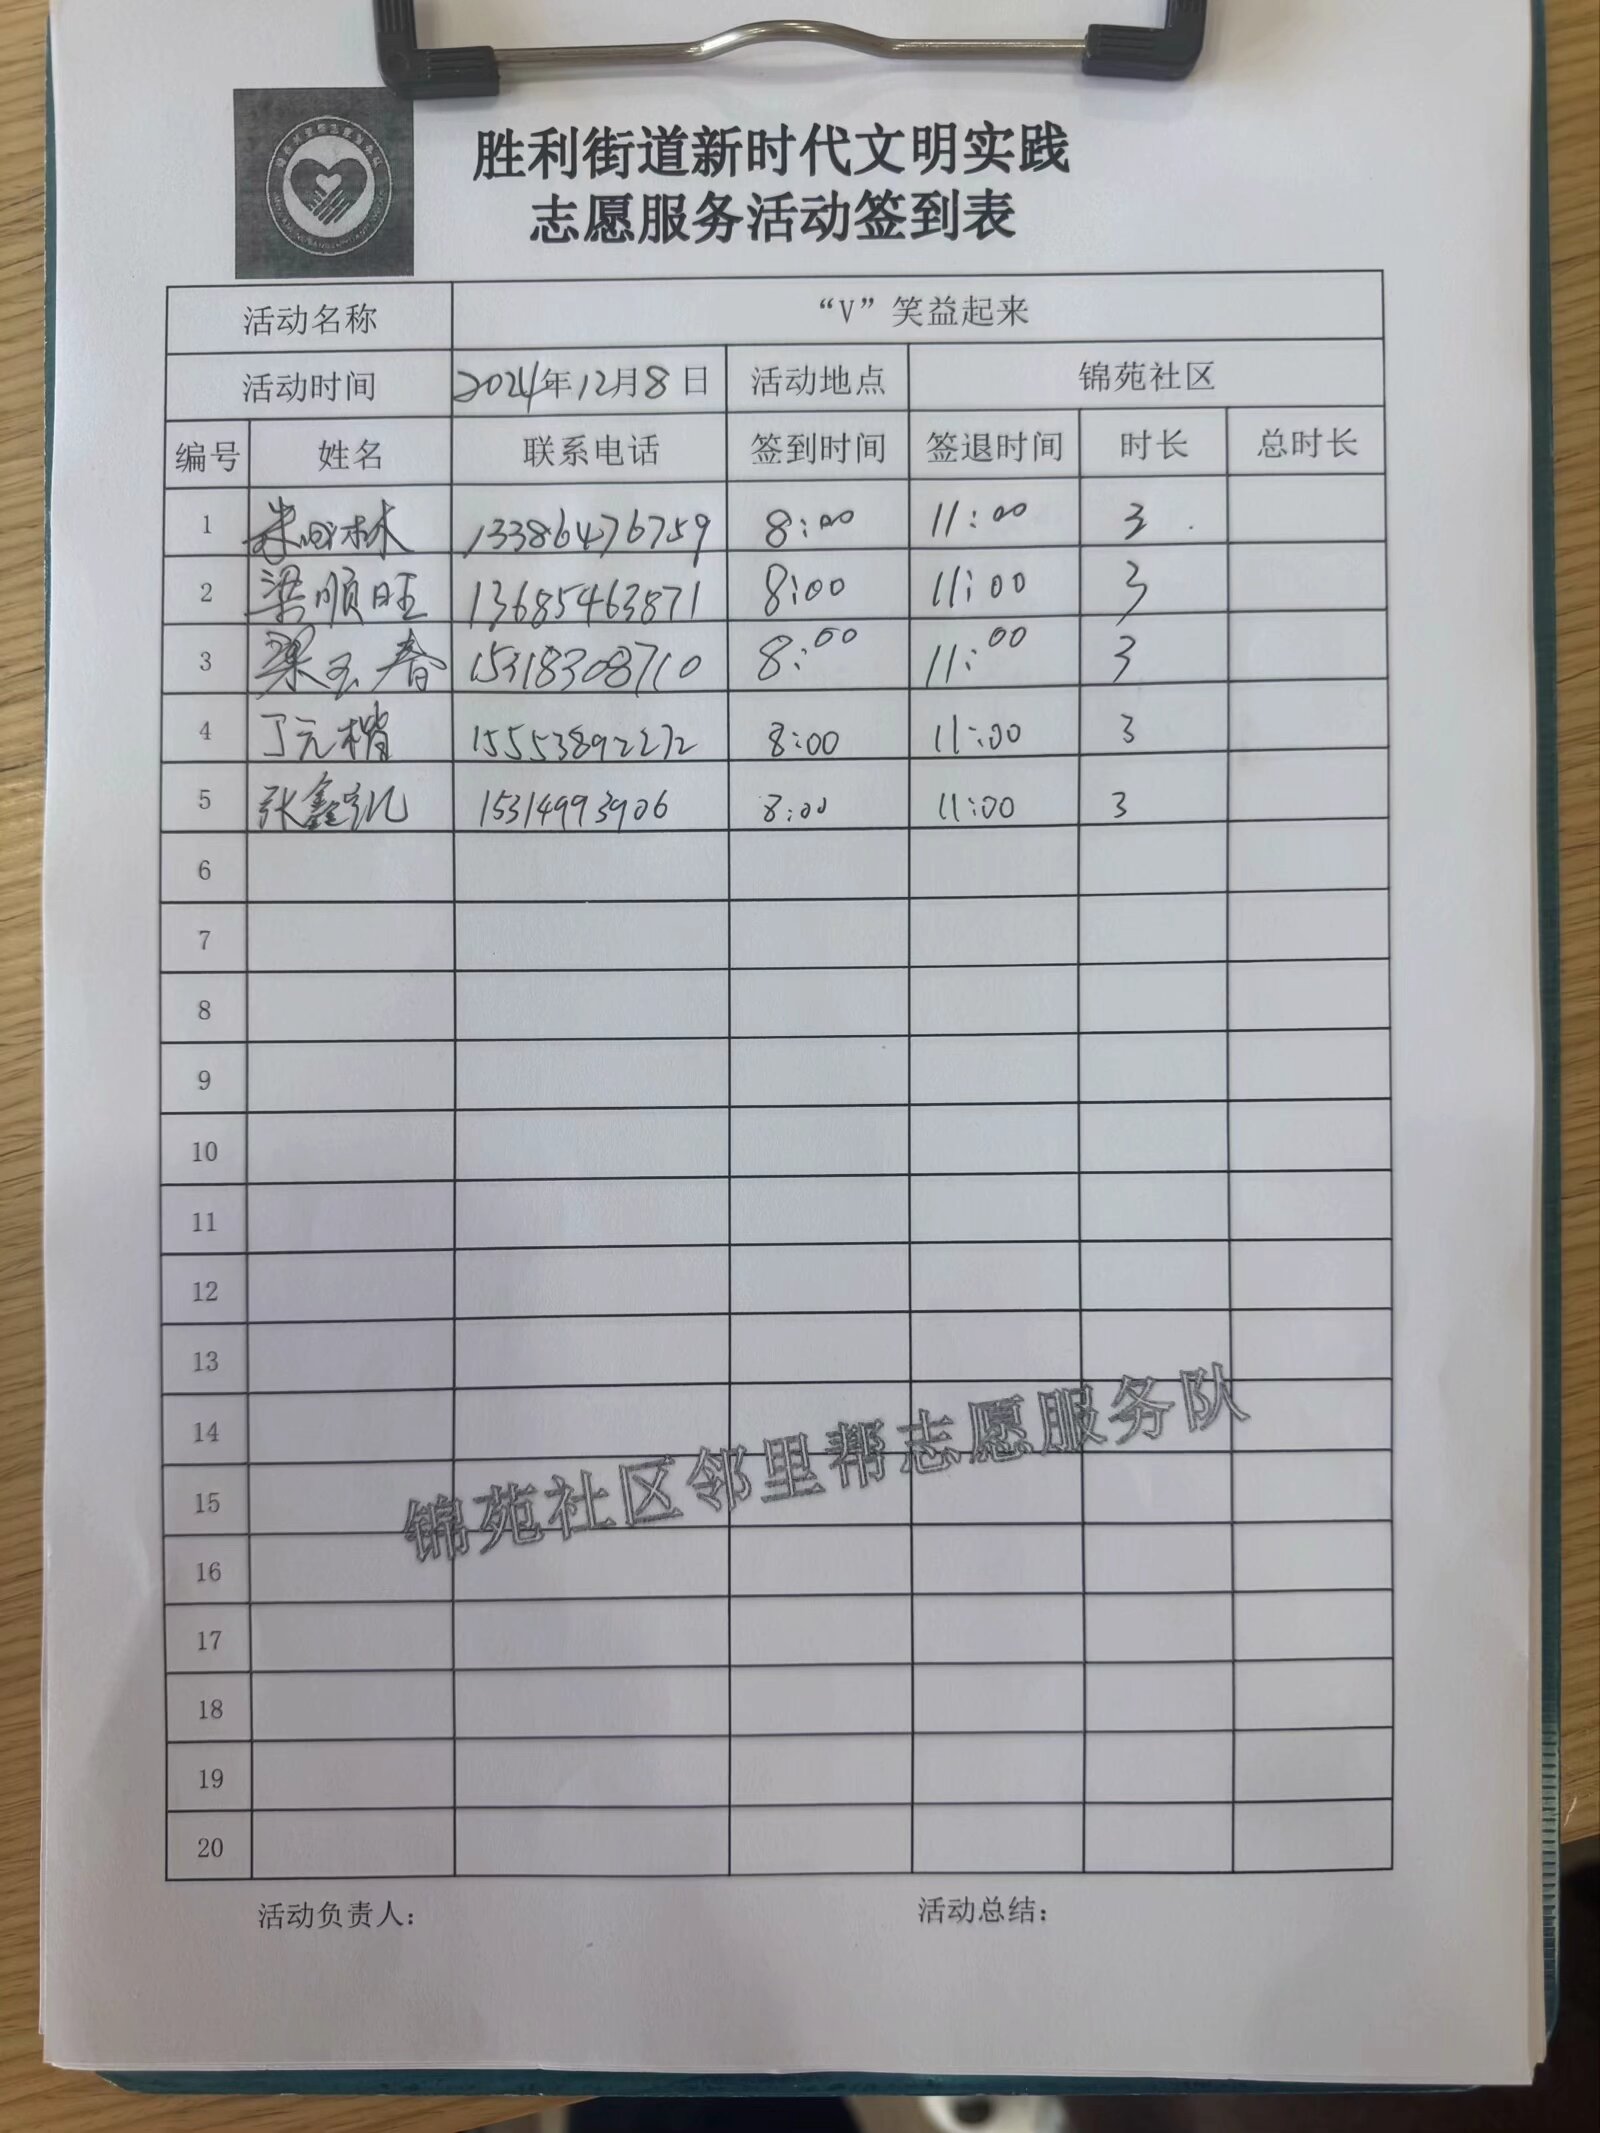 胜利街道新时代文明实践
志愿服务活动签到表
活动名称 “V”笑益起来
活动时间 2024年12月8日 活动地点 锦苑社区
编号 姓名 联系电话 签到时间 签退时间 时长 总时长
1 林 13386476759 8:00 11:00 3
2 梁顺旺 13685463871 8:00 11:00 3
3 梁玉春 15318308710 8:00 11:00 3
4 丁元楷 15553892272 8:00 11:00 3
5 张鑫凯 15314993906 8:00 11:00 3
6
7
8
9
10
11
12
13
14
15
16
17
18
19
20
锦苑社区邻里帮志愿服务队
活动负责人： 活动总结：